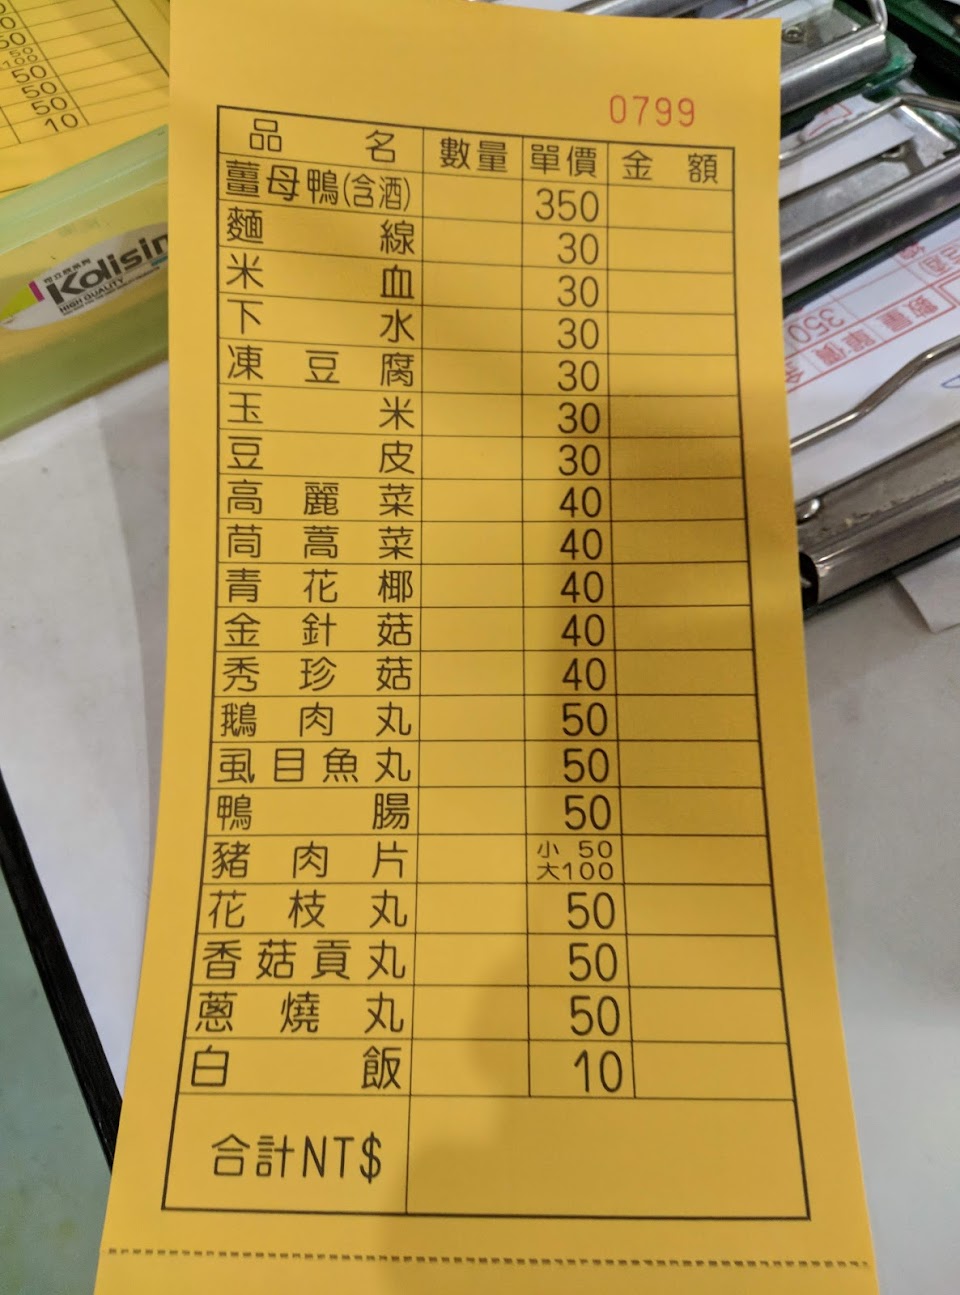 0799
品名 數量 單價 金額
薑母鴨(含酒) 350
麵線 30
米血 30
下水 30
凍豆腐 30
玉米 30
豆皮 30
高麗菜 40
茼蒿菜 40
青花椰 40
金針菇 40
秀珍菇 40
鵝肉丸 50
虱目魚丸 50
鴨腸 50
豬肉片 小 50 大100
花枝丸 50
香菇貢丸 50
蔥燒丸 50
白飯 10
合計NT$
50
50
100
50
50
50
10
Kolisin
HIGH QUALITY
數量 單價 金
350